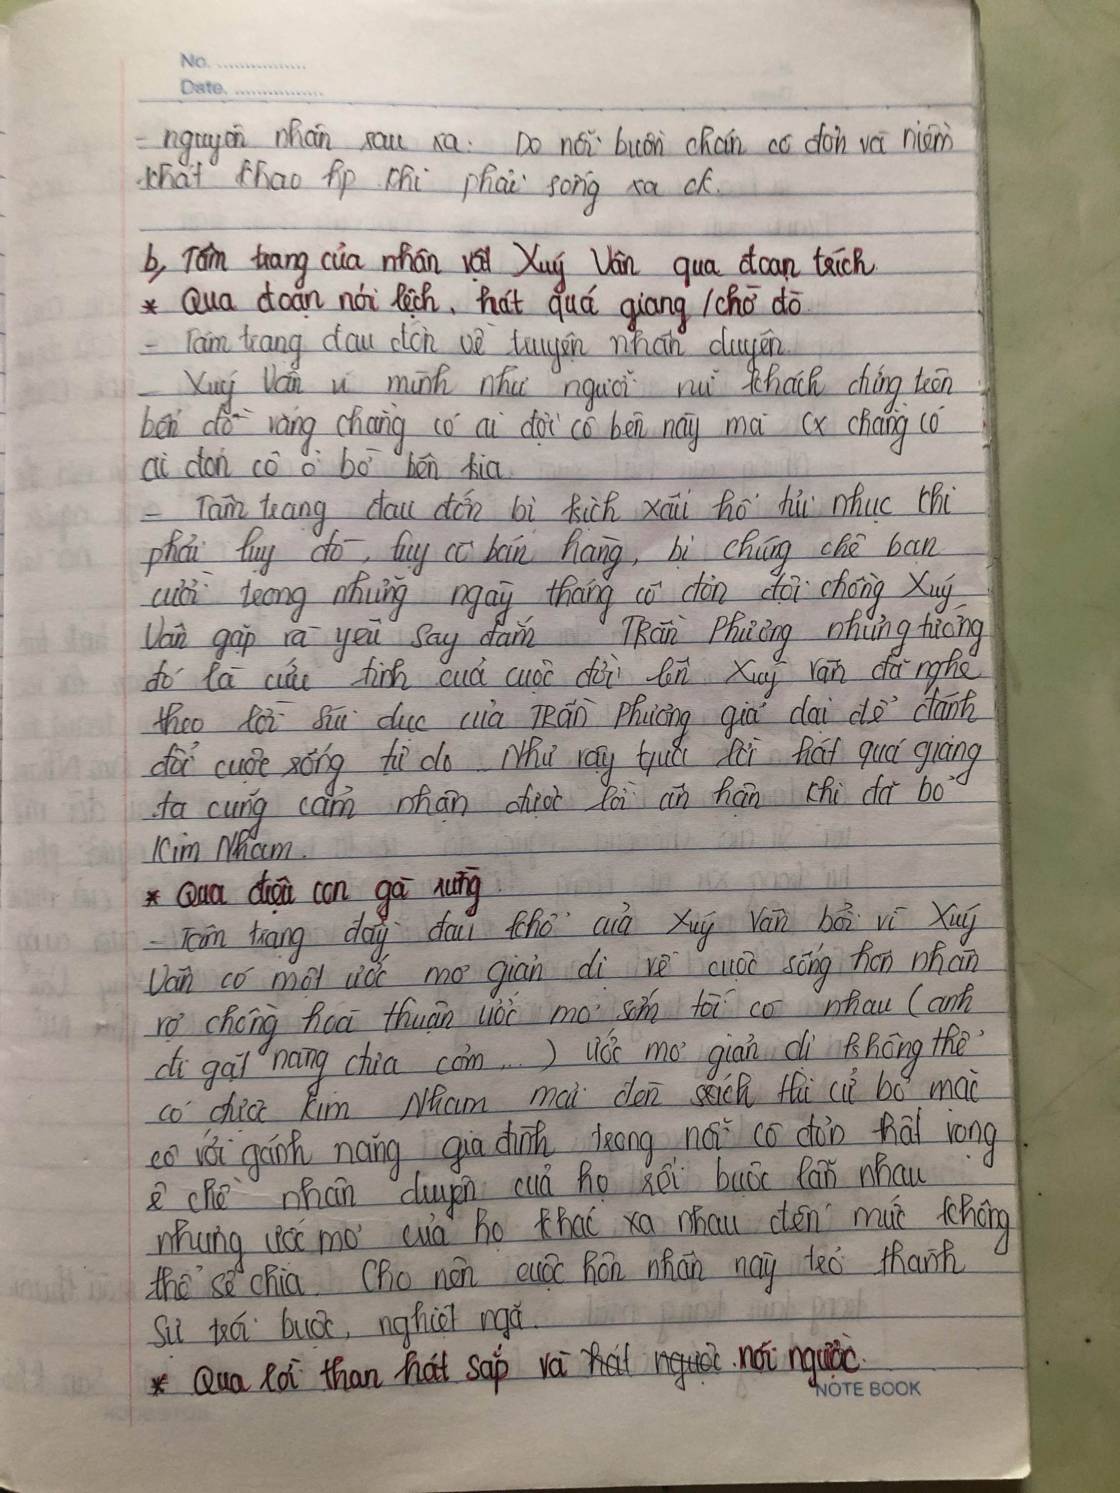 No. ................
Date. ................
- nguyên nhân sau xa. Do nỗi buồn chán cô đơn và niềm
khát khao hp khi phải sống xa ck.
b, Tâm trạng của nhân vật Xuý Vân qua đoạn trích
* Qua đoạn nói lệch, hát quá giang / chờ đò
- Tâm trạng đau đớn về truyện nhân duyên.
- Xuý Vân ví mình như người nữ khách đứng trên
bến đò vắng chẳng có ai đợi cô bên này mà cx chẳng có
ai đón cô ở bờ bên kia
- Tâm trạng đau đớn bi kịch xấu hổ tủi nhục khi
phải luỵ đò, luỵ cô bán hàng, bị chúng chê bạn
cười trong những ngày tháng cô đơn đợi chồng Xuý
Vân gặp và yêu say đắm Trần Phương nhưng tưởng
đó là cứu tinh cuả cuộc đời lên Xuý Vân đã nghe
theo lời súi dục của Trần Phương giả dại để đánh
đổi cuộc sống tự do. Như vậy qua lời hát quá giang
ta cũng cảm nhận được lời ân hận khi đã bỏ
Kim Nham.
* Qua điệu con gà rừng
- Tâm trạng đầy đau khổ cuả Xuý Vân bởi vì Xuý
Vân có một ước mơ giản dị về cuộc sống hôn nhân
vợ chồng hoà thuận ước mơ sớm tối có nhau (anh
đi gặt nàng chia cơm ...) ước mơ giản dị không thể
có được Kim Nham mải đèn sách thi cử bỏ mặc
cô với gánh nặng gia đình trong nỗi cô đơn thất vọng
ê chề nhân duyên cuả họ rối buộc lấn nhau
nhưng ước mơ của họ khác xa nhau đến mức không
thể sẻ chia. Cho nên cuộc hôn nhân này trở thành
sự trói buộc, nghiệt ngã.
* Qua lời than hát sắp và hát ngược nói ngược.
NOTE BOOK